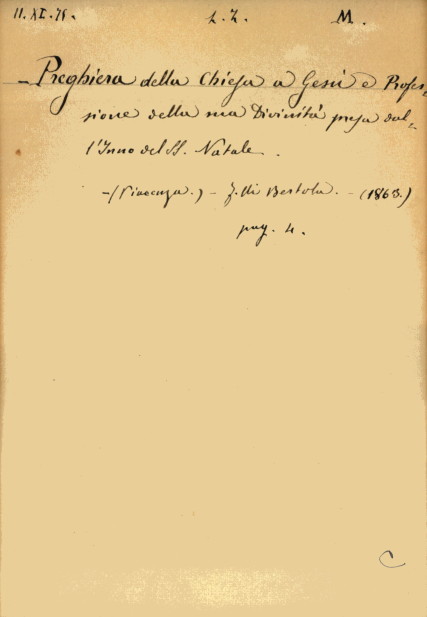 11. XI. 75. L. Z. M.
– Preghiera della Chiesa a Gesù e Profes-
sione della sua Divinità presa dal-
l'Inno del SS. Natale.
– (Vicenza.) – T. di Bertola. – (1863.)
pag. 4.
C